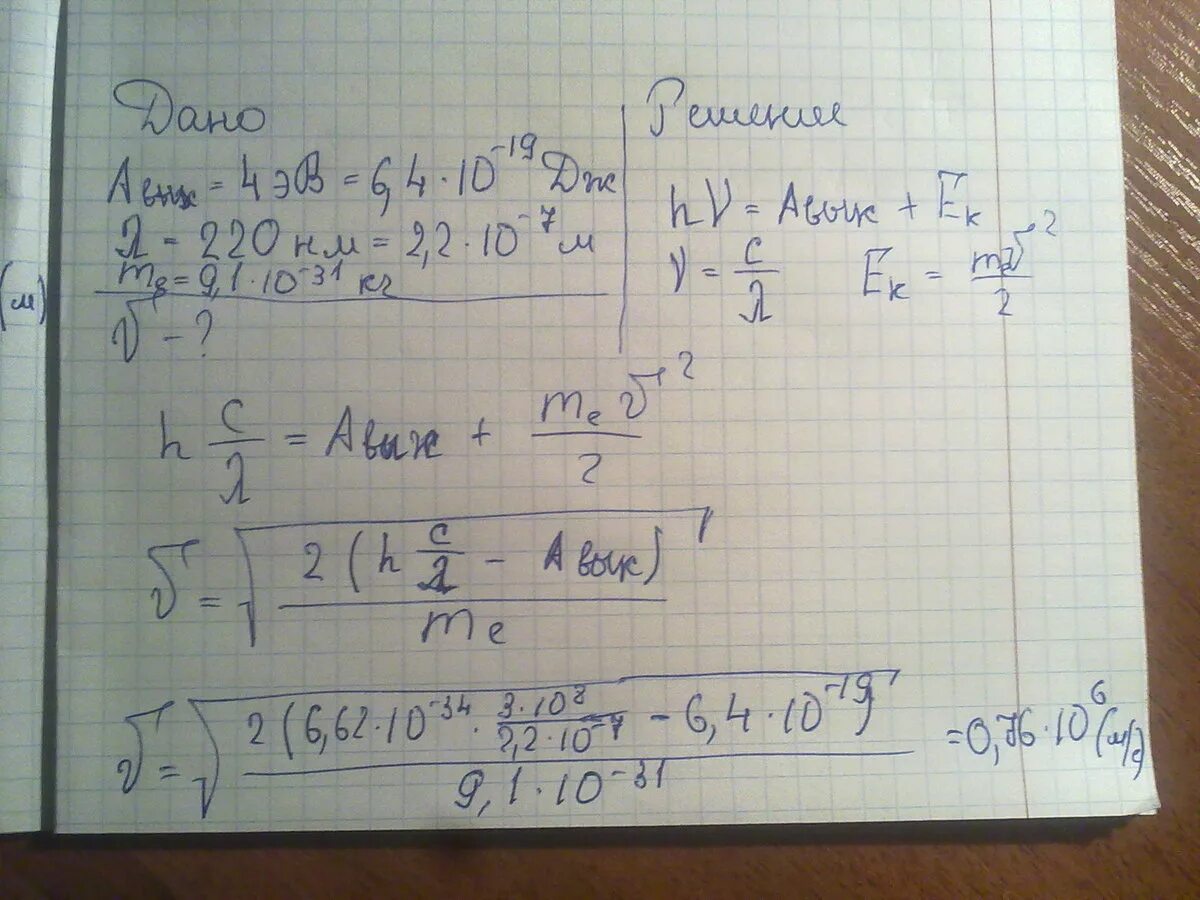 Дано
Aвых = 4 эВ = 6,4 · 10⁻¹⁹ Дж
λ = 220 нм = 2,2 · 10⁻⁷ м
mₑ = 9,1 · 10⁻³¹ кг
υ - ?
Решение
hν = Aвых + Eₖ
ν = c/λ Eₖ = mυ²/2
h c/λ = Aвых + mₑυ²/2
υ = √(2(h c/λ - Aвых)/mₑ)
υ = √(2(6,62·10⁻³⁴ · 3·10⁸/2,2·10⁻⁷ - 6,4·10⁻¹⁹)/9,1·10⁻³¹) = 0,76·10⁶ (м/с)
(м)